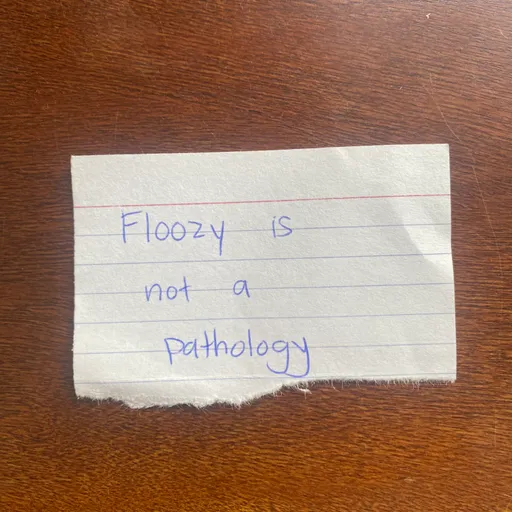 Floozy is
not a
pathology